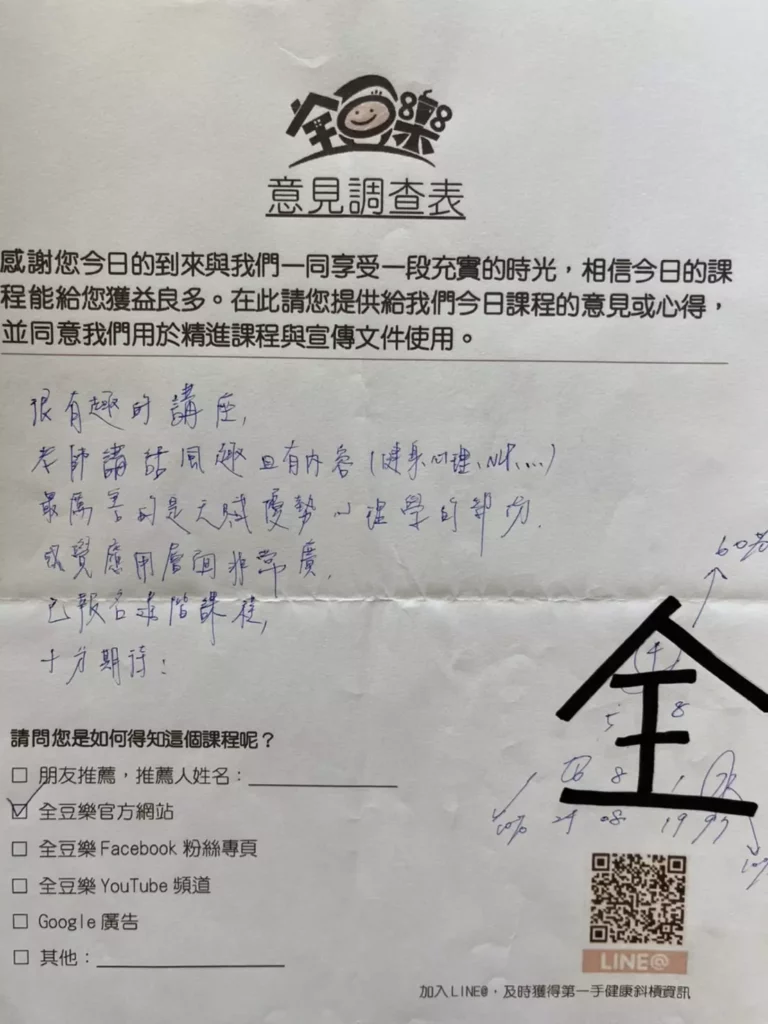 全豆樂
意見調查表
感謝您今日的到來與我們一同享受一段充實的時光，相信今日的課
程能給您獲益良多。在此請您提供給我們今日課程的意見或心得，
並同意我們用於精進課程與宣傳文件使用。
很有趣的講座,
老師講話風趣且有內容(健身、心理、...)
最厲害的是天賦優勢心理學的部份.
感覺應用層面非常廣,
已報名進階課程,
十分期待!
60%
4
5 8
全
8 1
10% 24 08 19 97
10%
請問您是如何得知這個課程呢？
□ 朋友推薦，推薦人姓名：
☑ 全豆樂官方網站
□ 全豆樂 Facebook 粉絲專頁
□ 全豆樂 YouTube 頻道
□ Google 廣告
□ 其他：
LINE@
加入 LINE@，及時獲得第一手健康斜槓資訊